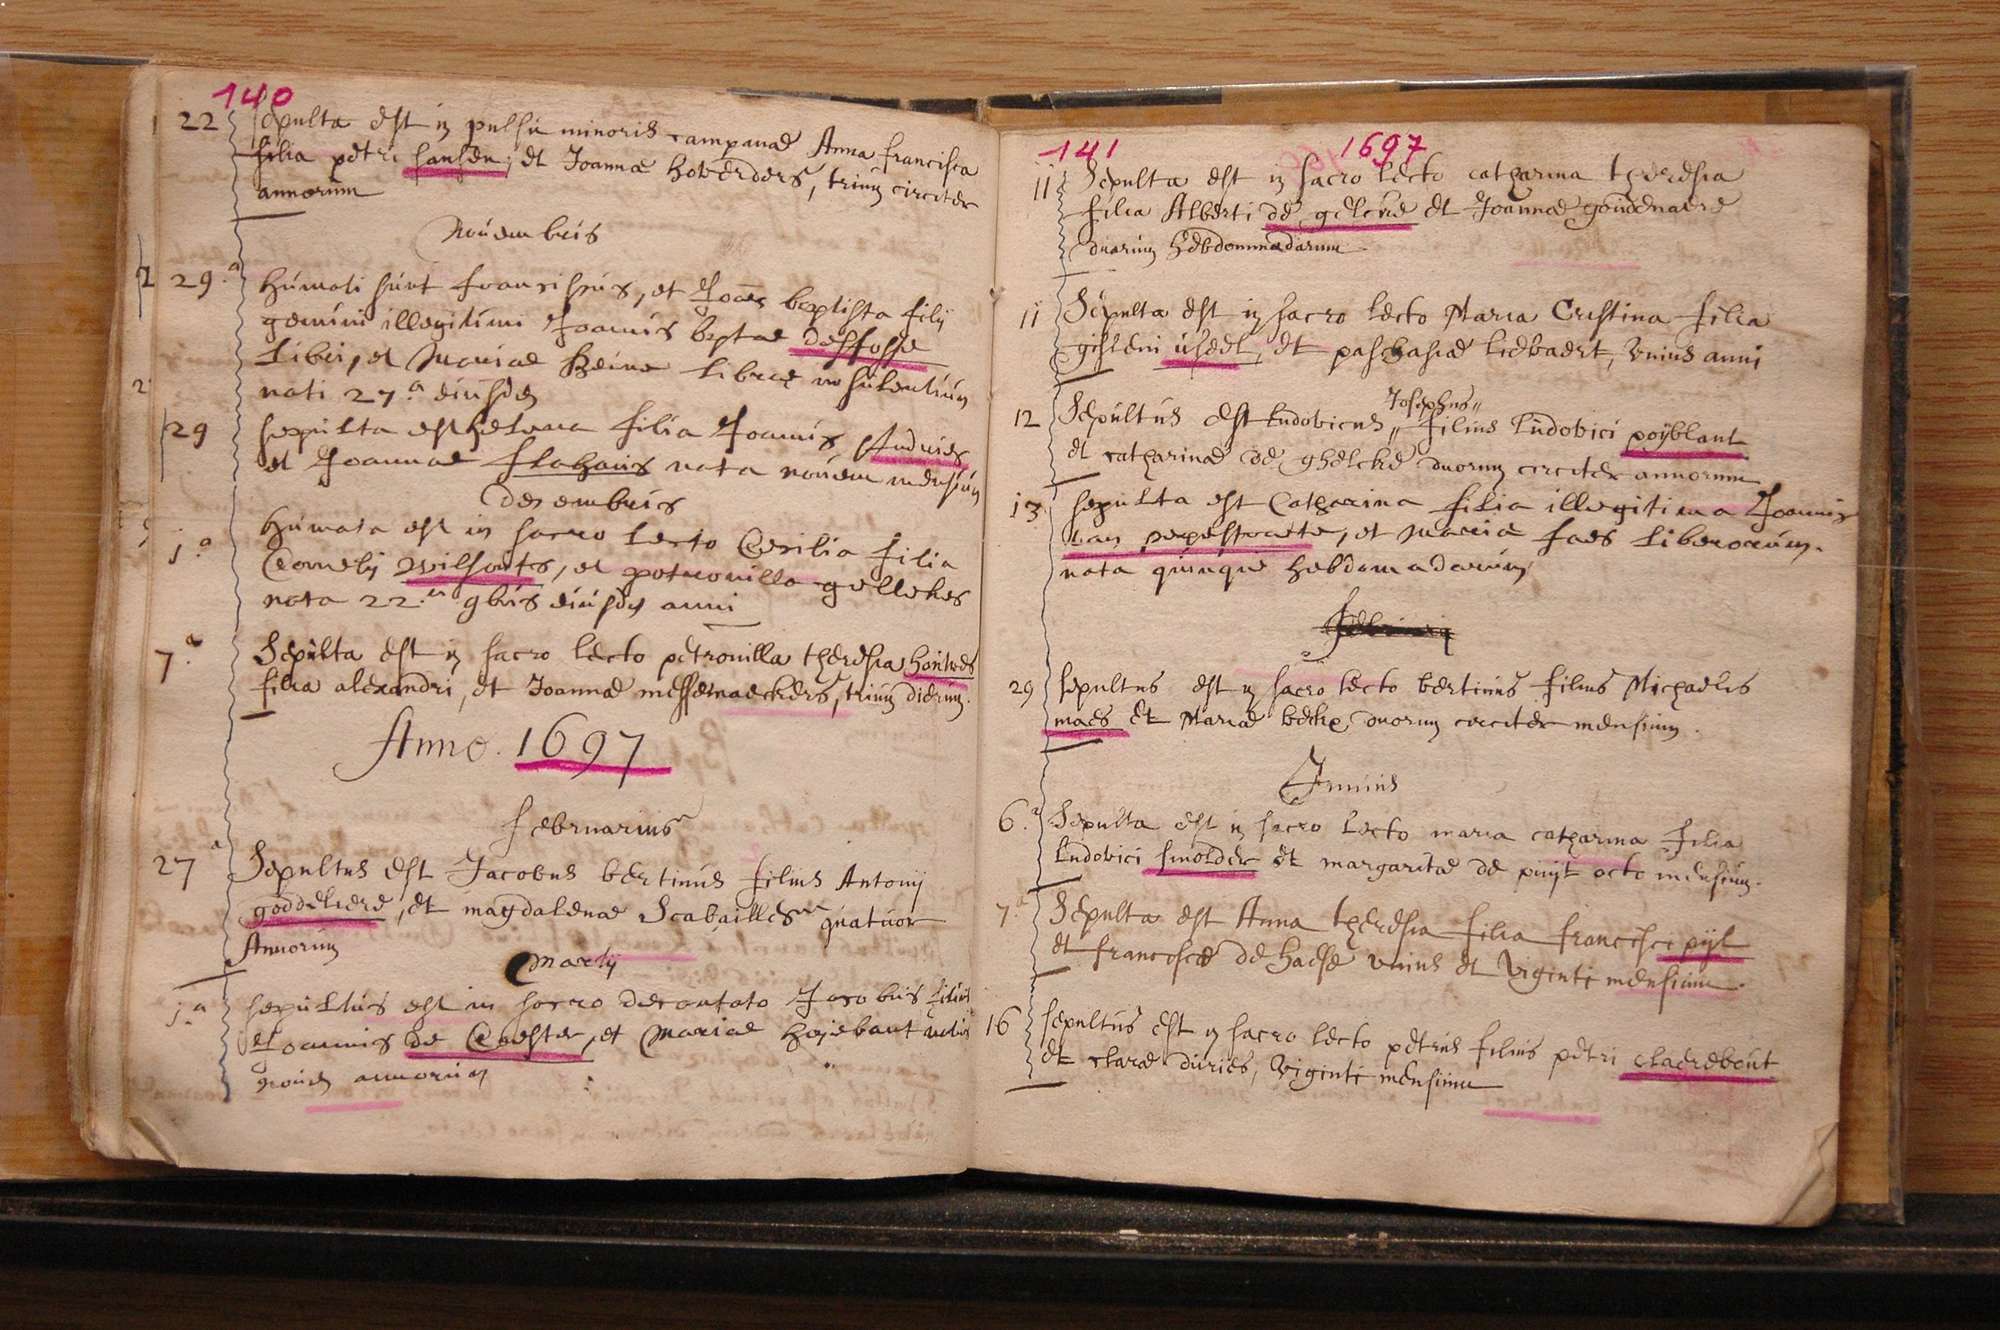 140
22 Sepulta est in pulsu minoris campanae Anna francisca
filia petri hansen, et Joannae hoverders, trium circiter
annorum
Novembris
29.a humati sunt franciscus, et Joães baptista filij
gemini illegitimi Joannis baptae desfosse
liberi, et Mariae Reine liberae
nati 27.a eiusdem
29 sepulta est helena filia Joannis Andries
et Joannae flahaus nata novem mensium
decembris
1.a humata est in sacro lecto Cecilia filia
Cornelij wilsouts, et petronilla gellekes
nata 22.a 9bris eiusdem anni
7.a Sepulta est in sacro lecto petronilla theresia houwes
filia alexandri, et Joannae messemaeckers, trium dierum.
Anno. 1697
februarius
27a Sepultus est Jacobus bertinus filius Antonij
goddeliere, et magdalenae Scabailles quatuor
Annorum
Martij
1.a sepultus est in sacro decantato Jacobus filius
Joannis de Coester, et Mariae hojebaut
novem annorum
141 1697
11 Sepulta est in sacro lecto catharina theresia
filia Alberti de gelcke et Joannae goudenaere
duarum hebdommadarum
11 Sepulta est in sacro lecto Maria Cristina filia
gisleni useel, et paschasiae liebaert, unius anni
Josephus"
12 Sepultus est Ludovicus " filius Ludovici poyblant
et catharinae de ghelcke duorum circiter annorum
13 sepulta est Catharina filia illegitima Joannis
van peperstraete, et Mariae faes liberorum.
nata quinque hebdomadarum
29 sepultus est in sacro lecto bertinus filius Michaelis
maes et Mariae becke, duorum circiter mensium.
Junius
6.a Sepulta est in sacro lecto maria catharina filia
Ludovici smolder et margaritae de puijt octo mensium.
7.a Sepulta est Anna theresia filia francisci pijl
et franciscae de haese unius et viginti mensium.
16 sepultus est in sacro lecto petrus filius petri claerebout
et clarae duries, viginti mensium